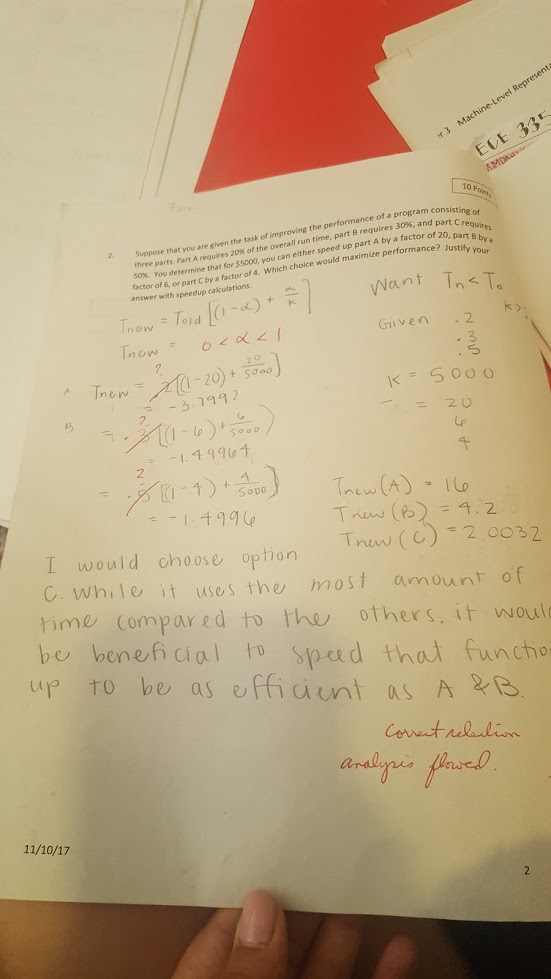 π 3 Machine-Level Represent
ECE 335
AMDAH
10 Points
2. Suppose that you are given the task of improving the performance of a program consisting of
three parts. Part A requires 20% of the overall run time, part B requires 30%, and part C requires
50%. You determine that for $5000, you can either speed up part A by a factor of 20, part B by a
factor of 6, or part C by a factor of 4. Which choice would maximize performance? Justify your
answer with speedup calculations.
Tnew = Told [(1-α) + α/k]
Want Tn < To
k>1
Tnew = 0 < α < 1
Given .2
.3
.5
?
A Tnew = .2[(1-20) + 20/5000]
= -3.7992
K = 5000
= 20
6
4
?
B = .3[(1-6) + 6/5000)
= -1.49964
?
= .5[(1-4) + 4/5000)
= -1.4996
Tnew (A) = 16
Tnew (B) = 4.2
Tnew (C) = 2.0032
I would choose option
C. While it uses the most amount of
time compared to the others, it would
be beneficial to speed that functio
up to be as efficient as A & B.
Correct selection
analysis flawed.
11/10/17
2